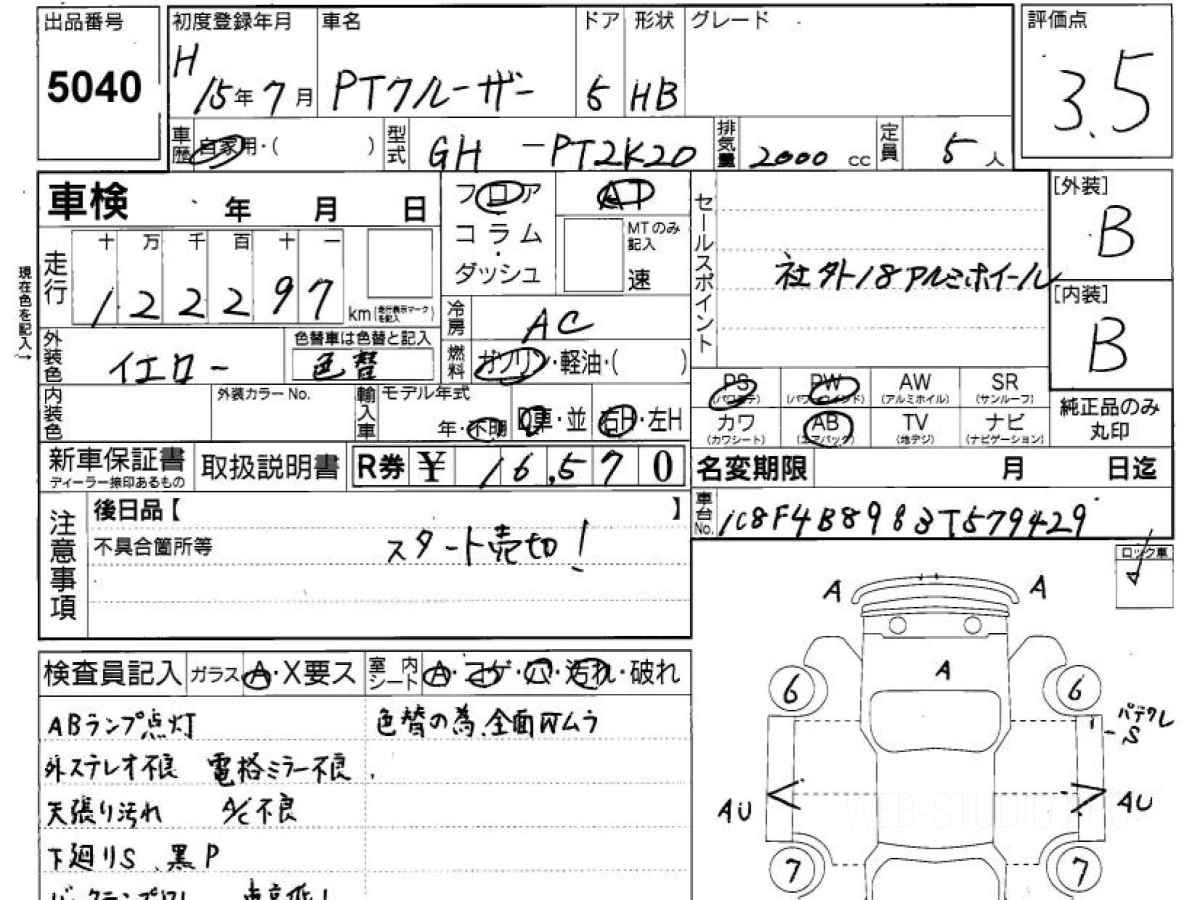 出品番号 初度登録年月 車名 ドア 形状 グレード 評価点
5040 H 15年7月 PTクルーザー 5 HB 3.5
車歴 自家用・( ) 型式 GH -PT2K20 排気量 2000 cc 定員 5人
車検 年 月 日
フロア AT
コラム・ダッシュ MTのみ記入 速
セールスポイント
社外18アルミホイール
[外装]
B
[内装]
B
現在色を記入→
走行 十 万 千 百 十 一
122297 km (走行表示マークを記入)
冷房 AC
外装色 イエロー 色替車は色替と記入 色替
燃料 ガソリン・軽油・( )
内装色 外装カラーNo. 輸入車 モデル年式 年・不明 D車・並 右H・左H
PS (パワステ) PW (パワーウインド) AW (アルミホイル) SR (サンルーフ)
カワ (カワシート) AB (エアバック) TV (地デジ) ナビ (ナビゲーション)
純正品のみ丸印
新車保証書 ディーラー捺印あるもの 取扱説明書 R券 ¥ 16,570
名変期限 月 日迄
車台No. 1C8F4B8983T579429
注意事項
後日品【 】
不具合箇所等 スタート売切!
ロック車
検査員記入 ガラス A・X要ス 室内シート A・コゲ・穴・汚れ・破れ
ABランプ点灯 色替の為、全面Wムラ
外ステレオ不良 電格ミラー不良
天張り汚れ A/C不良
下廻りS、黒P
A A
A
6 6
S
AU AU
WEB-STUDIO
7 7